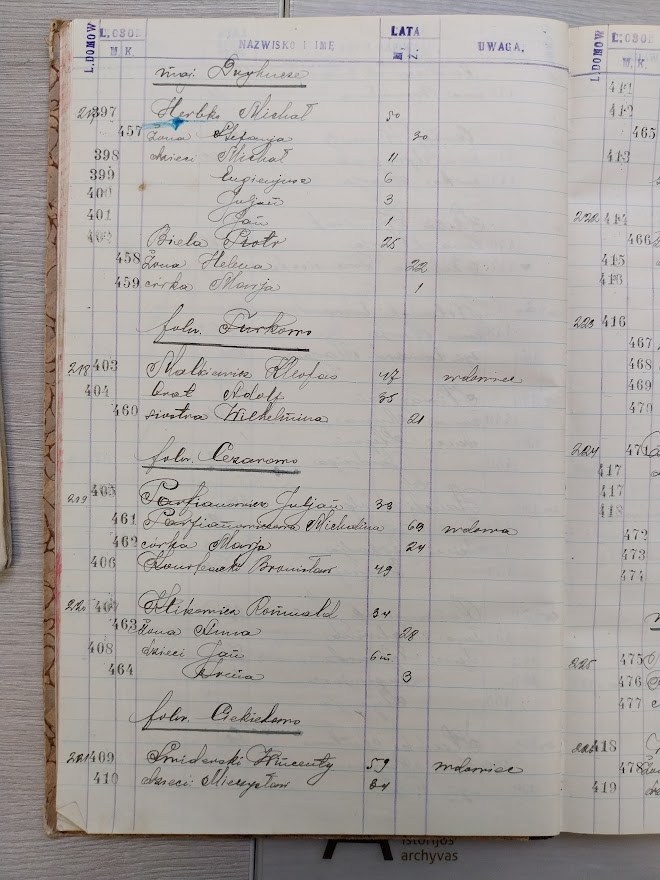 L. DOMÓW L. OSOB. NAZWISKO I IMĘ LATA UWAGA. L. DOMÓW L. OSOB.
M. K. M. Ż. M. K.
maj.
217 397 Herbko Michał 50
457 żona Stefanja 30
398 dzieci Michał 11
399 Eugienjusz 6
400 Juljan 3
401 Jan 1
402 Biela Piotr 25
458 żona Helena 22
459 córka Marja 1
folw. Turkowo
218 403 Małkiewicz Kleofas 47 wdowiec
404 brat Adolf 35
460 siostra Wilhelmina 21
folw. Cezarowo
219 405 Parfianowicz Juljan 33
461 Parfianowiczowa Michalina 69 wdowa
462 córka Marja 24
406 Bronisław 49
220 407 Romuald 34
463 żona Anna 28
408 dzieci Jan 6 m.
464 3
folw.
221 409 Śmiderski Wincenty 59 wdowiec
410 dzieci Mieczysław 34
411
412
465
413
222 414
466
415
416
223 416
467
468
469
479
224 471
417
417
418
472
473
474
225 475
476
477
418
478
419
istorijos
archyvas